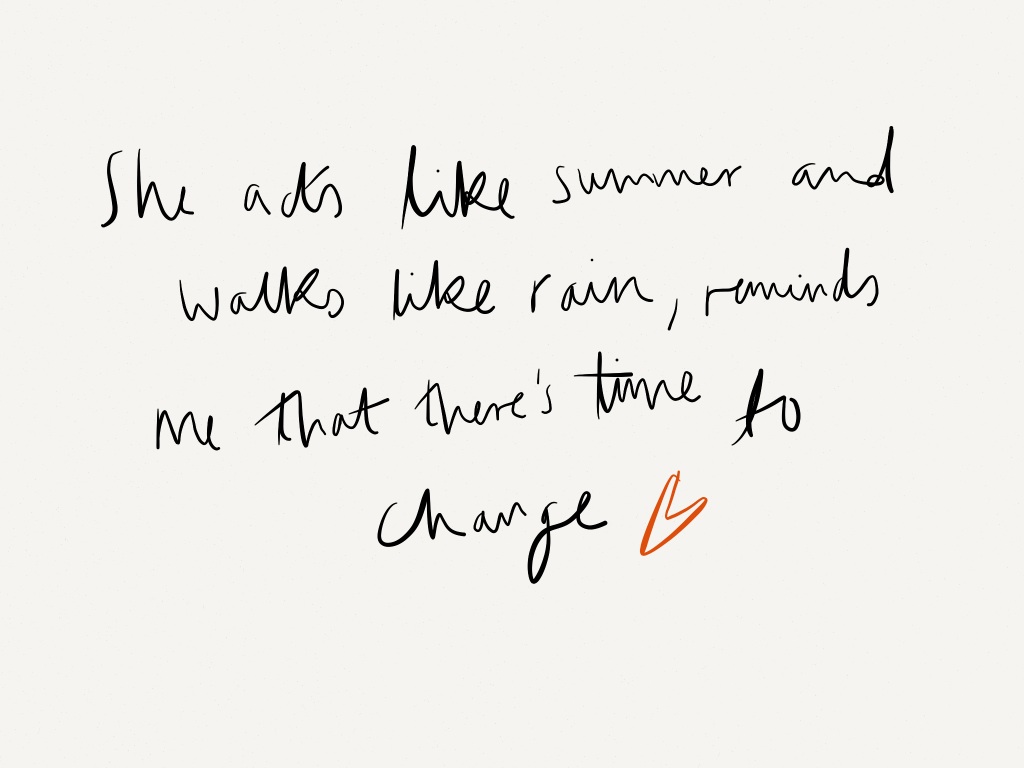 She acts like summer and
walks like rain, reminds
me that there's time to
change